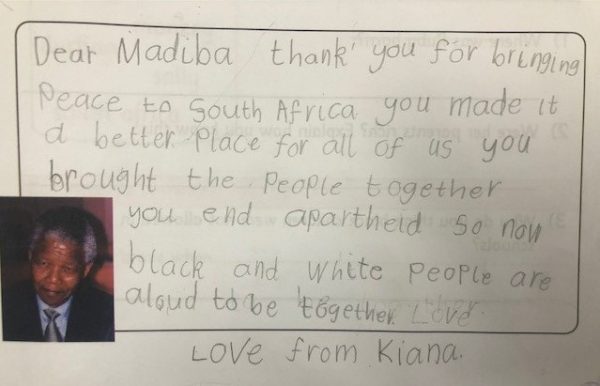 Dear Madiba thank you for bringing
Peace to South Africa you made it
a better Place for all of us you
brought the People together
you end apartheid So now
black and white People are
aloud to be together. Love
Love from Kiana.